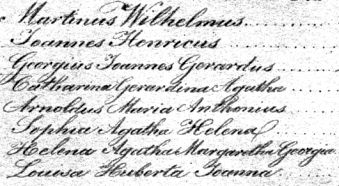 Martinus Wilhelmus
Joannes Henricus
Georgius Joannes Gerardus
Catharina Gerardina Agatha
Arnoldus Maria Anthonius
Sophia Agatha Helena
Helena Agatha Margaretha Georgia
Louisa Huberta Joanna